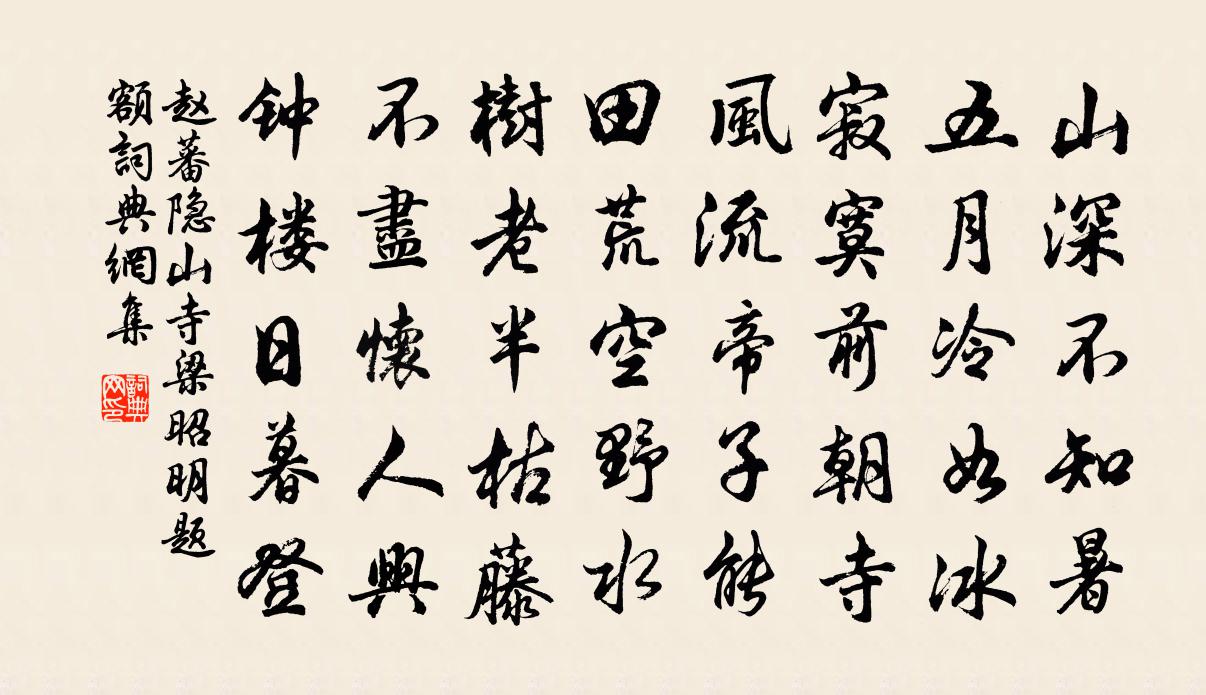 山深不知暑
五月冷如冰
寂寞前朝寺
風流帝子能
田荒空野水
樹老半枯藤
不盡懷人興
钟楼日暮登
赵蕃隐山寺梁昭明题
额詞典網集
詞典网印